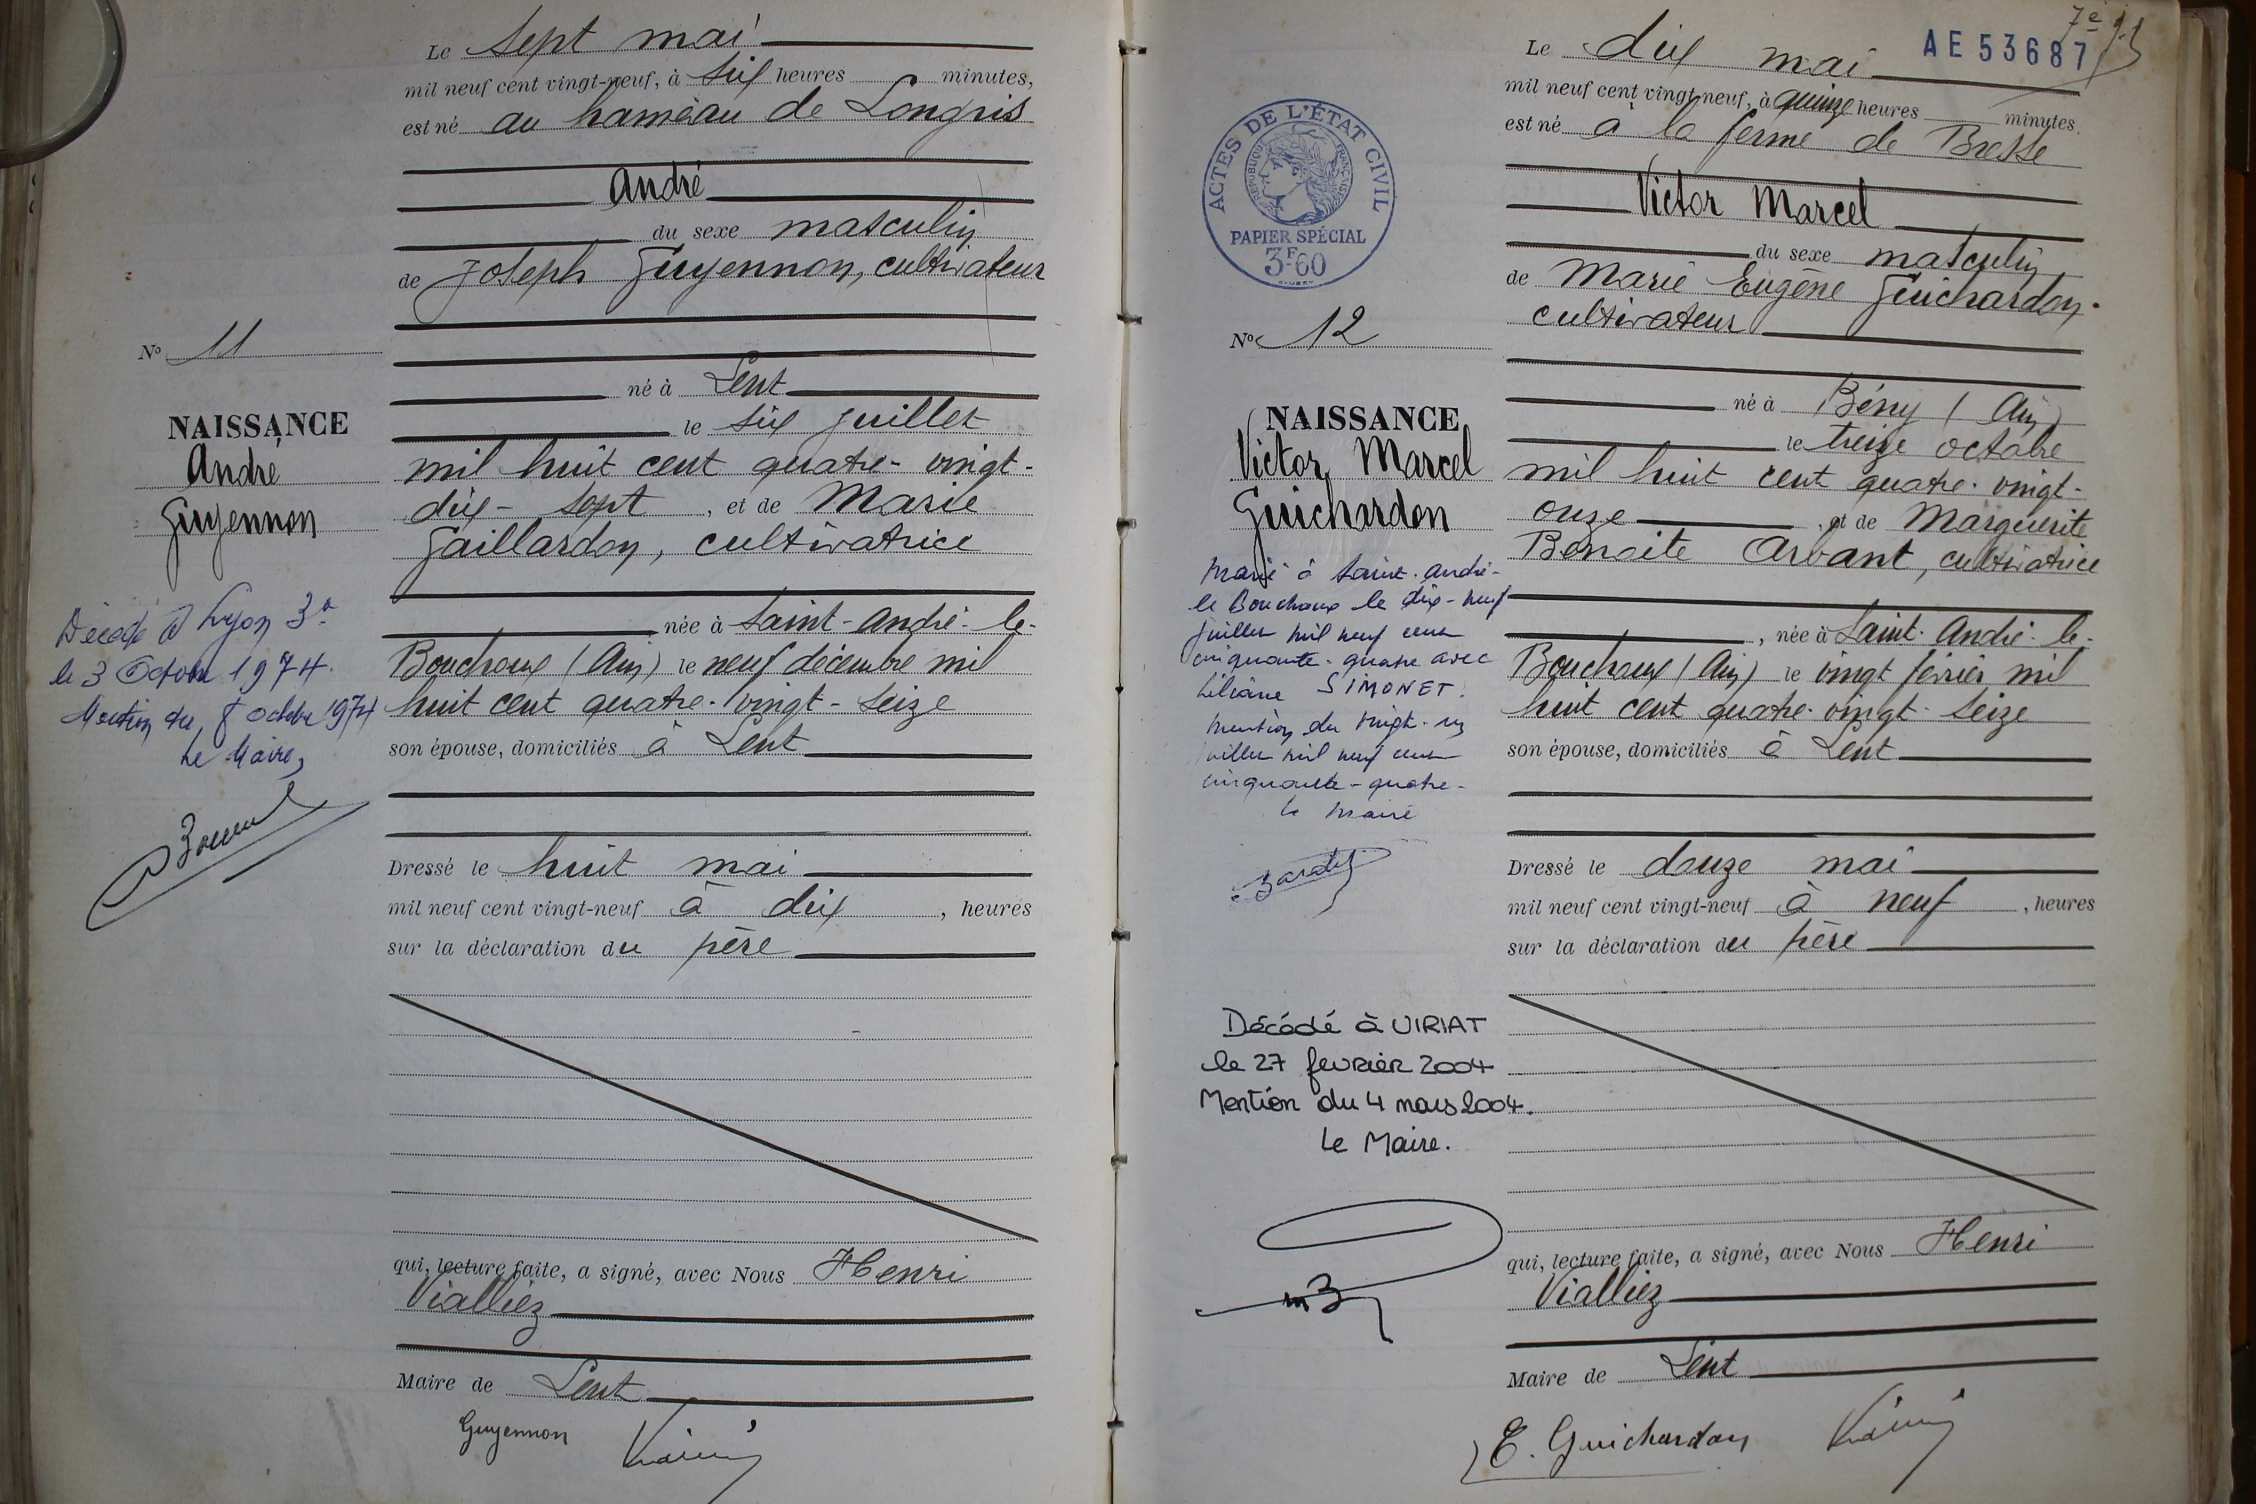 Le sept mai
mil neuf cent vingt-neuf, à six heures minutes,
est né au hameau de Longris
André
du sexe masculin
de Joseph Guyennon, cultivateur
né à Lent
le six juillet
mil huit cent quatre-vingt-
dix-sept, et de Marie
Gaillardon, cultivatrice
née à Saint-André-le-
Bouchoux (Ain) le neuf décembre mil
huit cent quatre-vingt-seize
son épouse, domiciliés à Lent
Dressé le huit mai
mil neuf cent vingt-neuf à dix, heures
sur la déclaration du père
qui, lecture faite, a signé, avec Nous Henri
Vialliez
Maire de Lent
Guyennon
No 11
NAISSANCE
André
Guyennon
Décédé à Lyon 3e
le 3 Octobre 1974.
Mention du 8 octobre 1974
Le Maire,
7e
AE53687
Le dix mai
mil neuf cent vingt-neuf, à quinze heures minutes.
est né à la ferme de Bresse
Victor Marcel
du sexe masculin
de Marie Eugène Guichardon,
cultivateur
né à Bény (Ain)
le treize octobre
mil huit cent quatre-vingt-
onze, et de Marguerite
Benoite Arbant, cultivatrice
, née à Saint-André-le-
Bouchoux (Ain) le vingt février mil
huit cent quatre-vingt-seize
son épouse, domiciliés à Lent
Dressé le douze mai
mil neuf cent vingt-neuf à neuf, heures
sur la déclaration du père
qui, lecture faite, a signé, avec Nous Henri
Vialliez
Maire de Lent
E. Guichardon
ACTES DE L'ÉTAT CIVIL
RÉPUBLIQUE FRANÇAISE
PAPIER SPÉCIAL
3F60
No 12
NAISSANCE
Victor Marcel
Guichardon
Marié à Saint-André-
le Bouchoux le dix-neuf
juillet mil neuf cent
cinquante-quatre avec
Liliane SIMONET.
Mention du vingt-un
juillet mil neuf cent
cinquante-quatre-
le maire
Décédé à VIRIAT
le 27 février 2004
Mention du 4 mars 2004.
Le Maire.